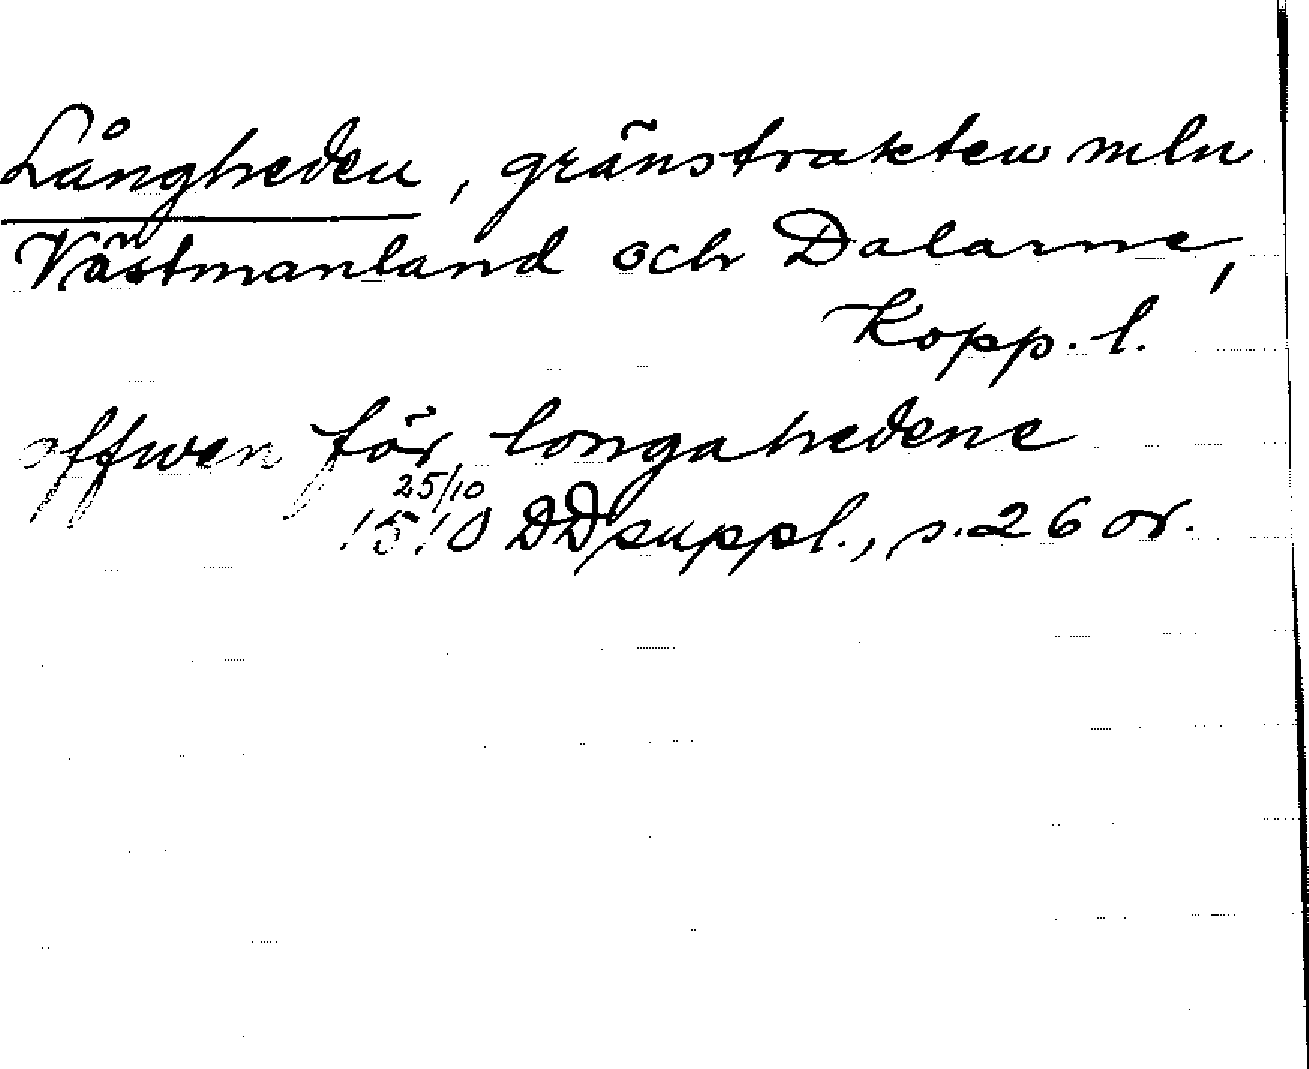 Långheden, gränstrakten mln
Västmanland och Dalarne,
Kopp. l.
offwen för longahedene
25/10
1510 DD suppl., s. 26 or.